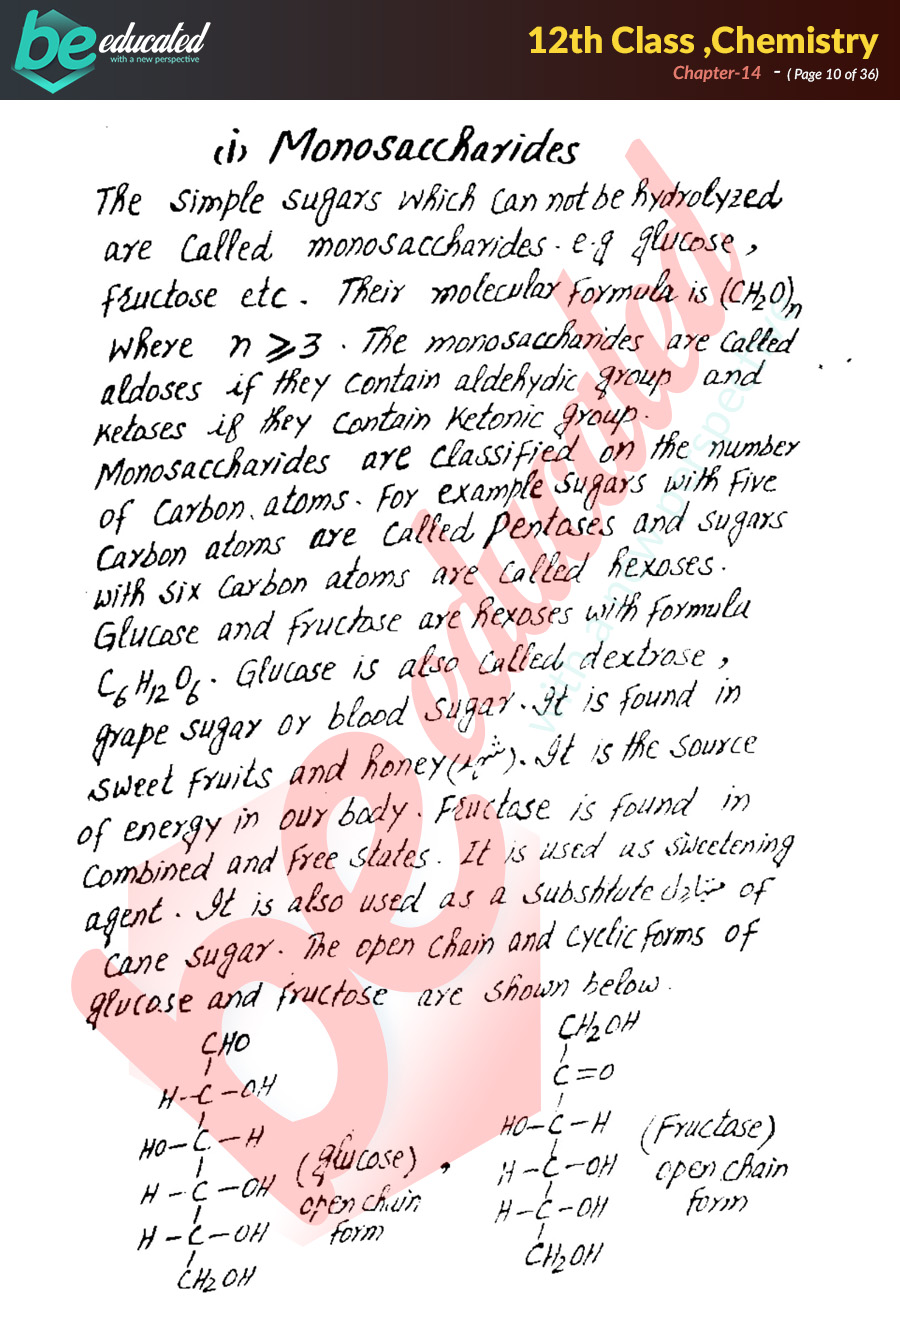 be educated
with a new perspective
12th Class ,Chemistry
Chapter-14 - ( Page 10 of 36)
(i) Monosaccharides
The simple sugars which can not be hydrolyzed
are called monosaccharides. e.g glucose,
fructose etc. Their molecular formula is (CH₂O)n
where n ⩾ 3. The monosaccharides are called
aldoses if they contain aldehydic group and
ketoses if they contain ketonic group.
Monosaccharides are classified on the number
of carbon atoms. For example sugars with five
carbon atoms are called pentoses and sugars
with six carbon atoms are called hexoses.
Glucose and fructose are hexoses with formula
C₆H₁₂O₆. Glucose is also called dextrose,
grape sugar or blood sugar. It is found in
sweet fruits and honey (شہد). It is the source
of energy in our body. Fructose is found in
combined and free states. It is used as sweetening
agent. It is also used as a substitute متبادل of
cane sugar. The open chain and cyclic forms of
glucose and fructose are shown below.
CHO
H-C-OH
HO-C-H
H-C-OH
H-C-OH
CH₂OH
(glucose),
open chain
form
CH₂OH
C=O
HO-C-H
H-C-OH
H-C-OH
CH₂OH
(Fructose)
open chain
form
be educated
with a new perspective